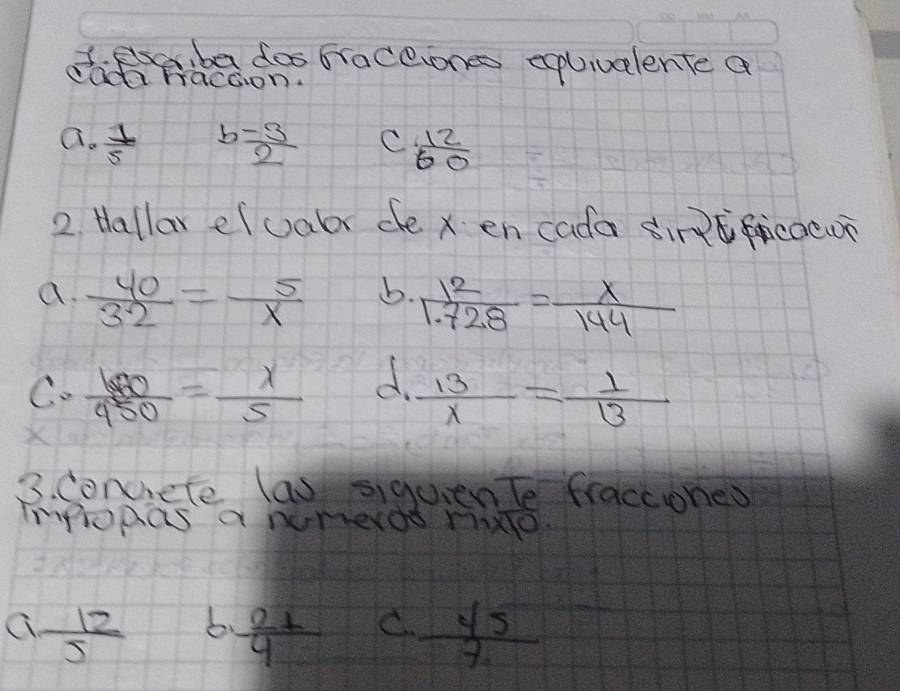 1. Escriba dos fracciones equivalente a
cada fracción.
a. 1/5 b -3/2 c. 12/60
2. Hallar el valor de x en cada simplificación
a. 40/32 = 5/x b. 12/1.728 = x/144
c. 180/450 = x/5 d. 13/x = 1/13
3. Convierte las siguiente fracciones
impropias a numeros mixto.
a. 12/5 b. 21/4 c. 45/7